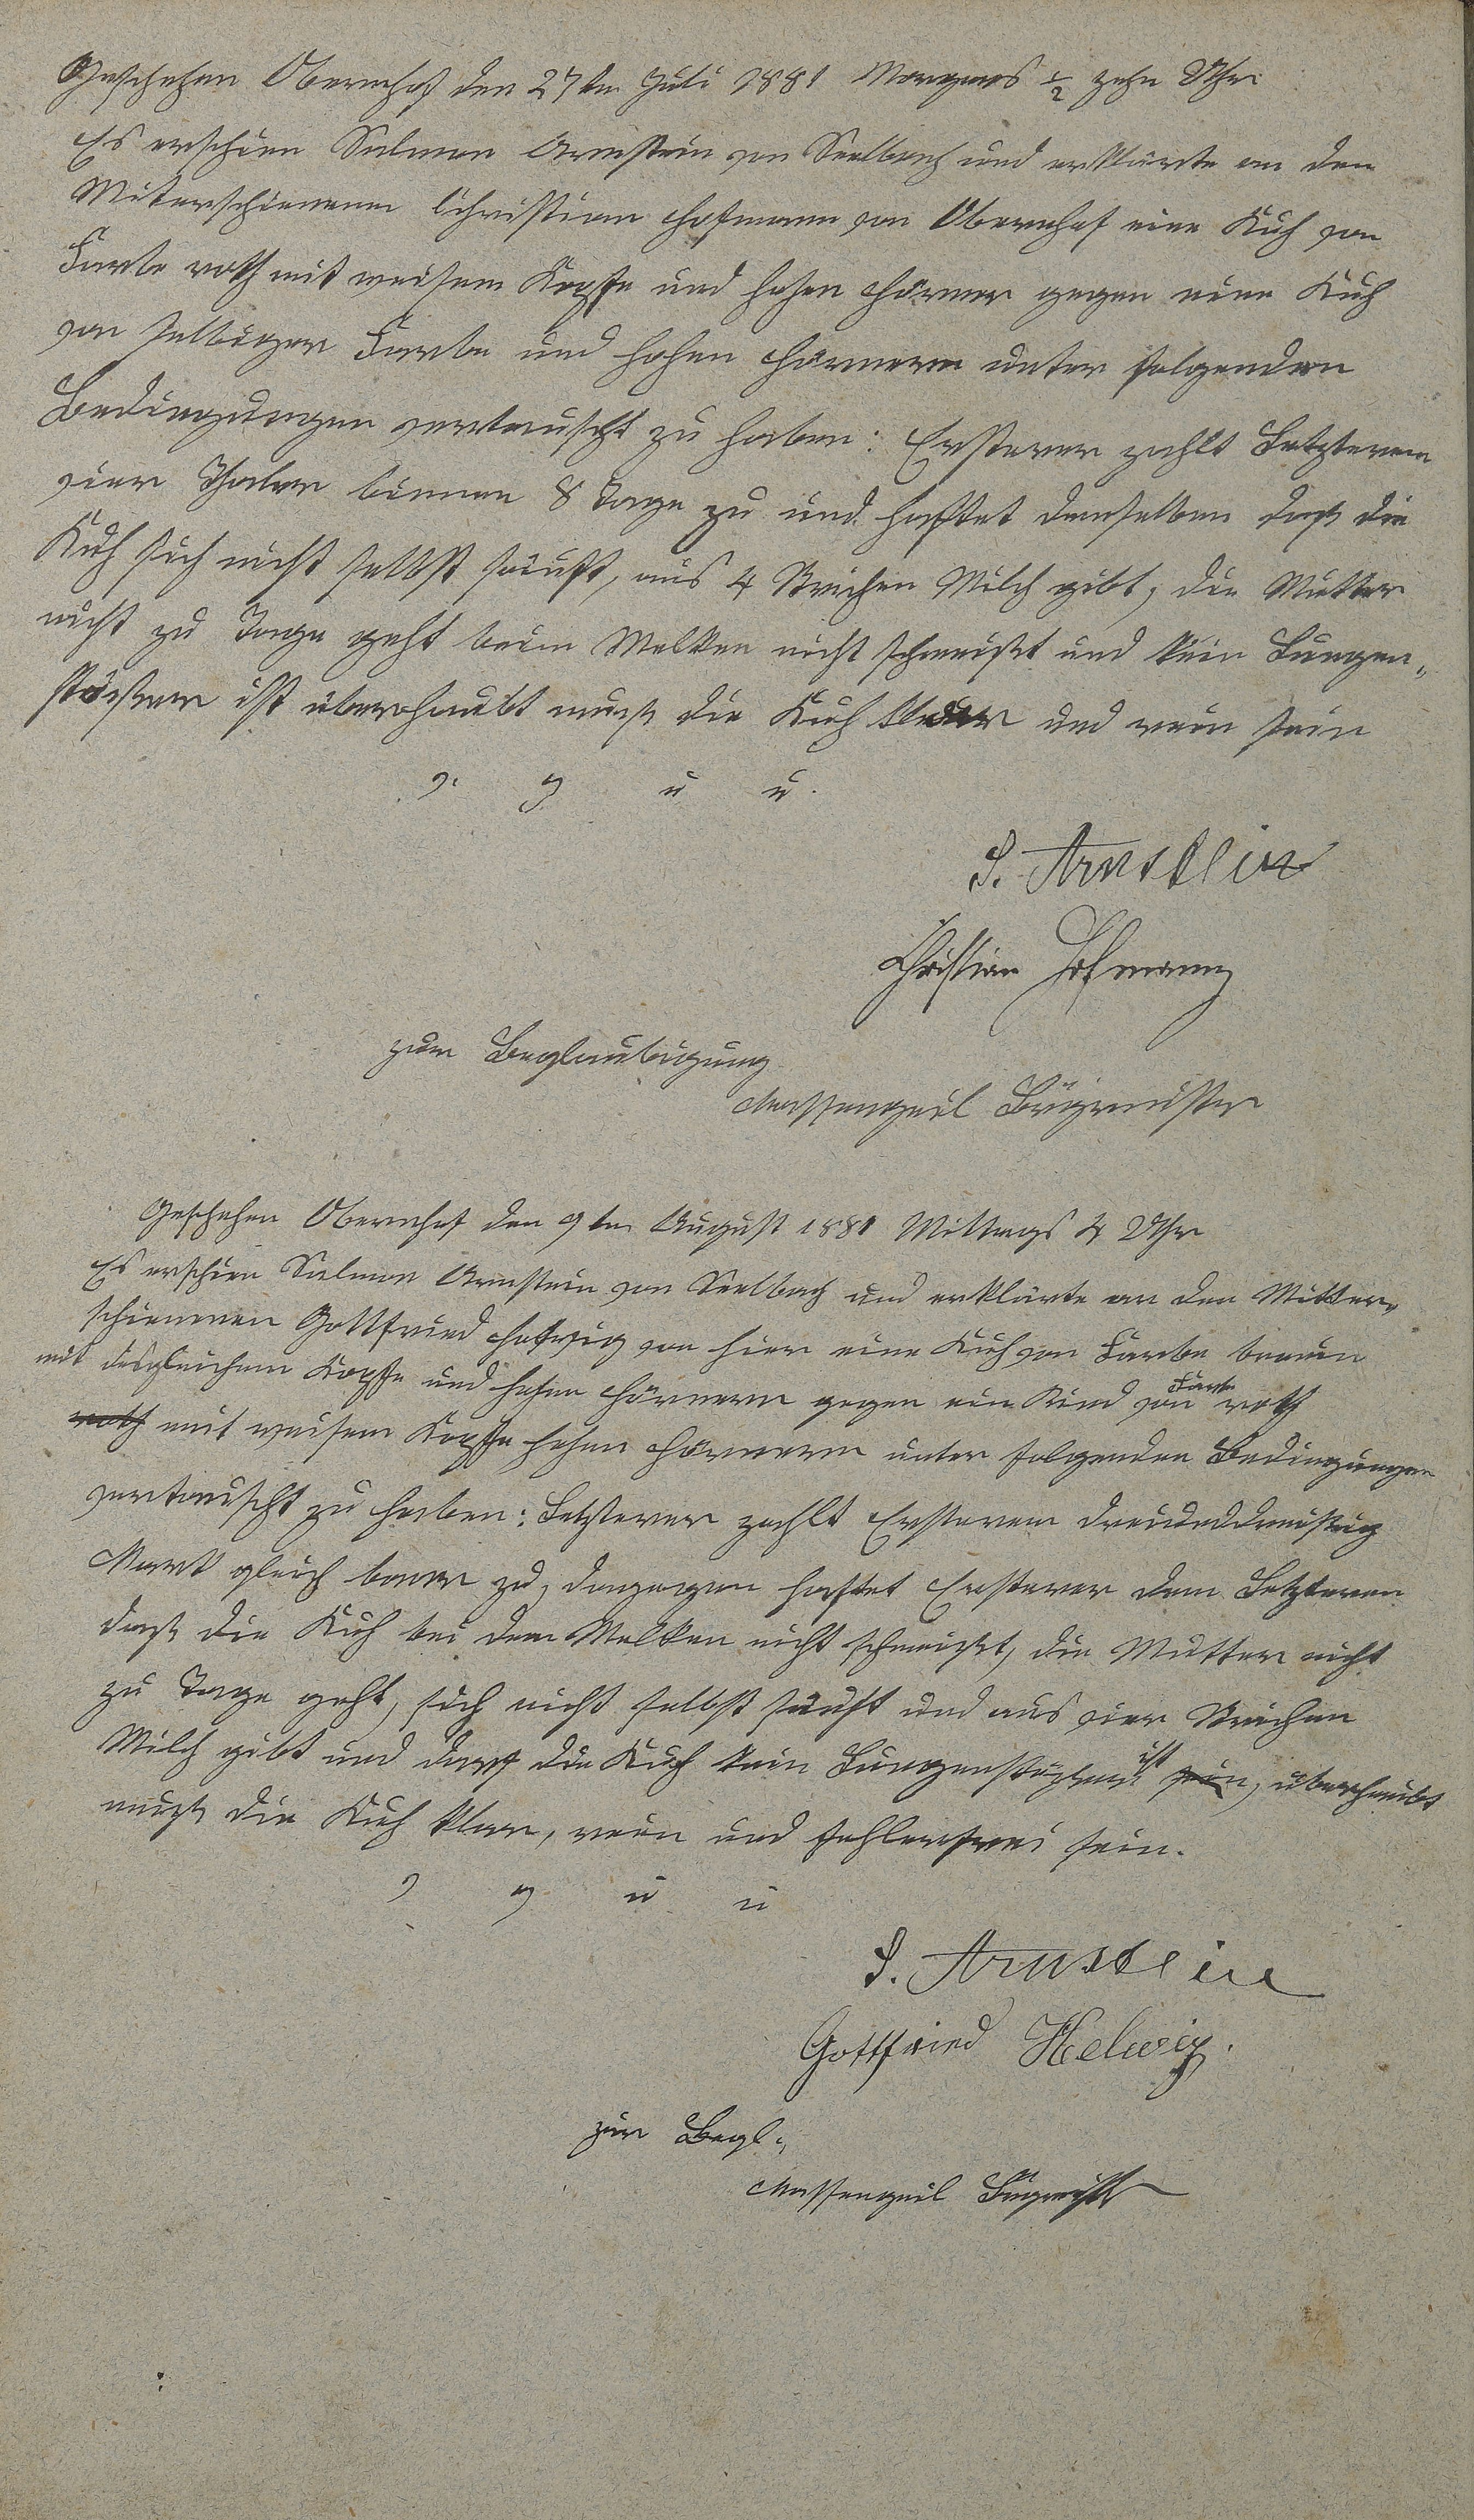 Geschehen Obernhof den 27ten Juli 1881 Morgens ½ zehn Uhr
Es erschien Salmon Arnstein von Seelbach und erklärte an den
Miterschienenen Christian Hofmann von Obernhof eine Kuh von
Farbe roth mit weisem Kopfe und hohen Hörner gegen eine Kuh
von selbiger Farbe und hohen Hörnern unter folgenden
Bedingungen vertauscht zu haben: Ersterer zahlt Letzterem
vier Thaler binnen 8 Tage zu und haftet demselben daß die
Kuh sich nicht selbst säuft, aus 4 Strichen Milch gibt, die Mutter
nicht zu Tage geht beim Melken nicht schmeißt und kein Lungen„
stößer ist überhaubt muß die Kuh klaar und rein sein
v. g u u.
S. Arnstein
Christian Hofmann
zur Beglaubigung
Massengeil Bürgermeister
Geschehen Obernhof den 9ten August 1881 Mittags 4 Uhr
Es erschien Salmon Arnstein von Seelbach und erklärte an den Mitter„
schienenen Gottfried Helwig von hier eine Kuh von Farbe braun
mit desgleichem Kopfe und hohen Hörnern gegen ein Rind von Farbe roth
roth mit weisem Kopfe hohen Hörnern unter folgenden Bedingungen
vertauscht zu haben: Letzterer zahlt Ersterem dreiunddreißig
Mark gleich baar zu, dagegen haftet Ersterer dem Letzteren
daß die Kuh bei dem Melken nicht schmeißt, die Mutter nicht
zu Tage geht, sich nicht selbst säuft und aus vier Strichen
Milch gibt und daß die Kuh kein Lungenstößer ist sein, überhaubt
muß die Kuh klar, rein und fehlerfrei sein.
v g u u
S. Arnstein
Gottfried Helwig.
zur Begl.„
Massengeil Bürgermeister